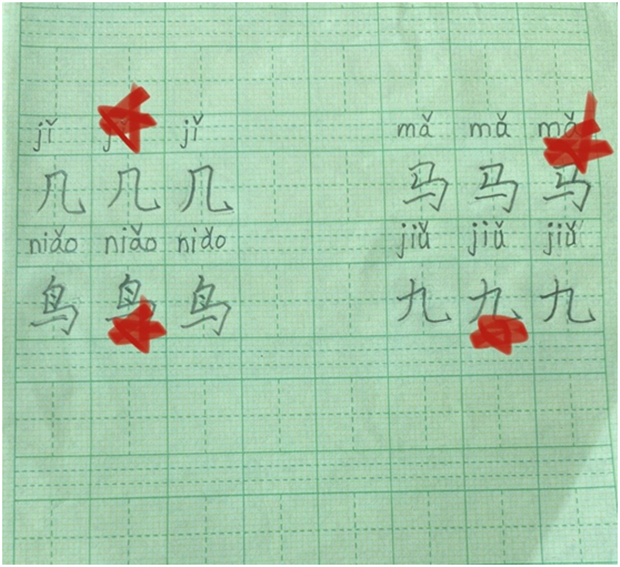 jǐ jǐ mǎ mǎ mǎ
几 几 几 马 马 马
niǎo niǎo niǎo jiǔ jiǔ jiǔ
鸟 鸟 鸟 九 九 九